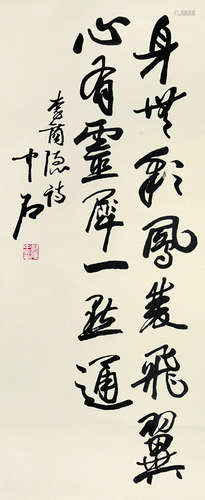 身無彩鳳雙飛翼
心有靈犀一點通
李商隱詩
中石